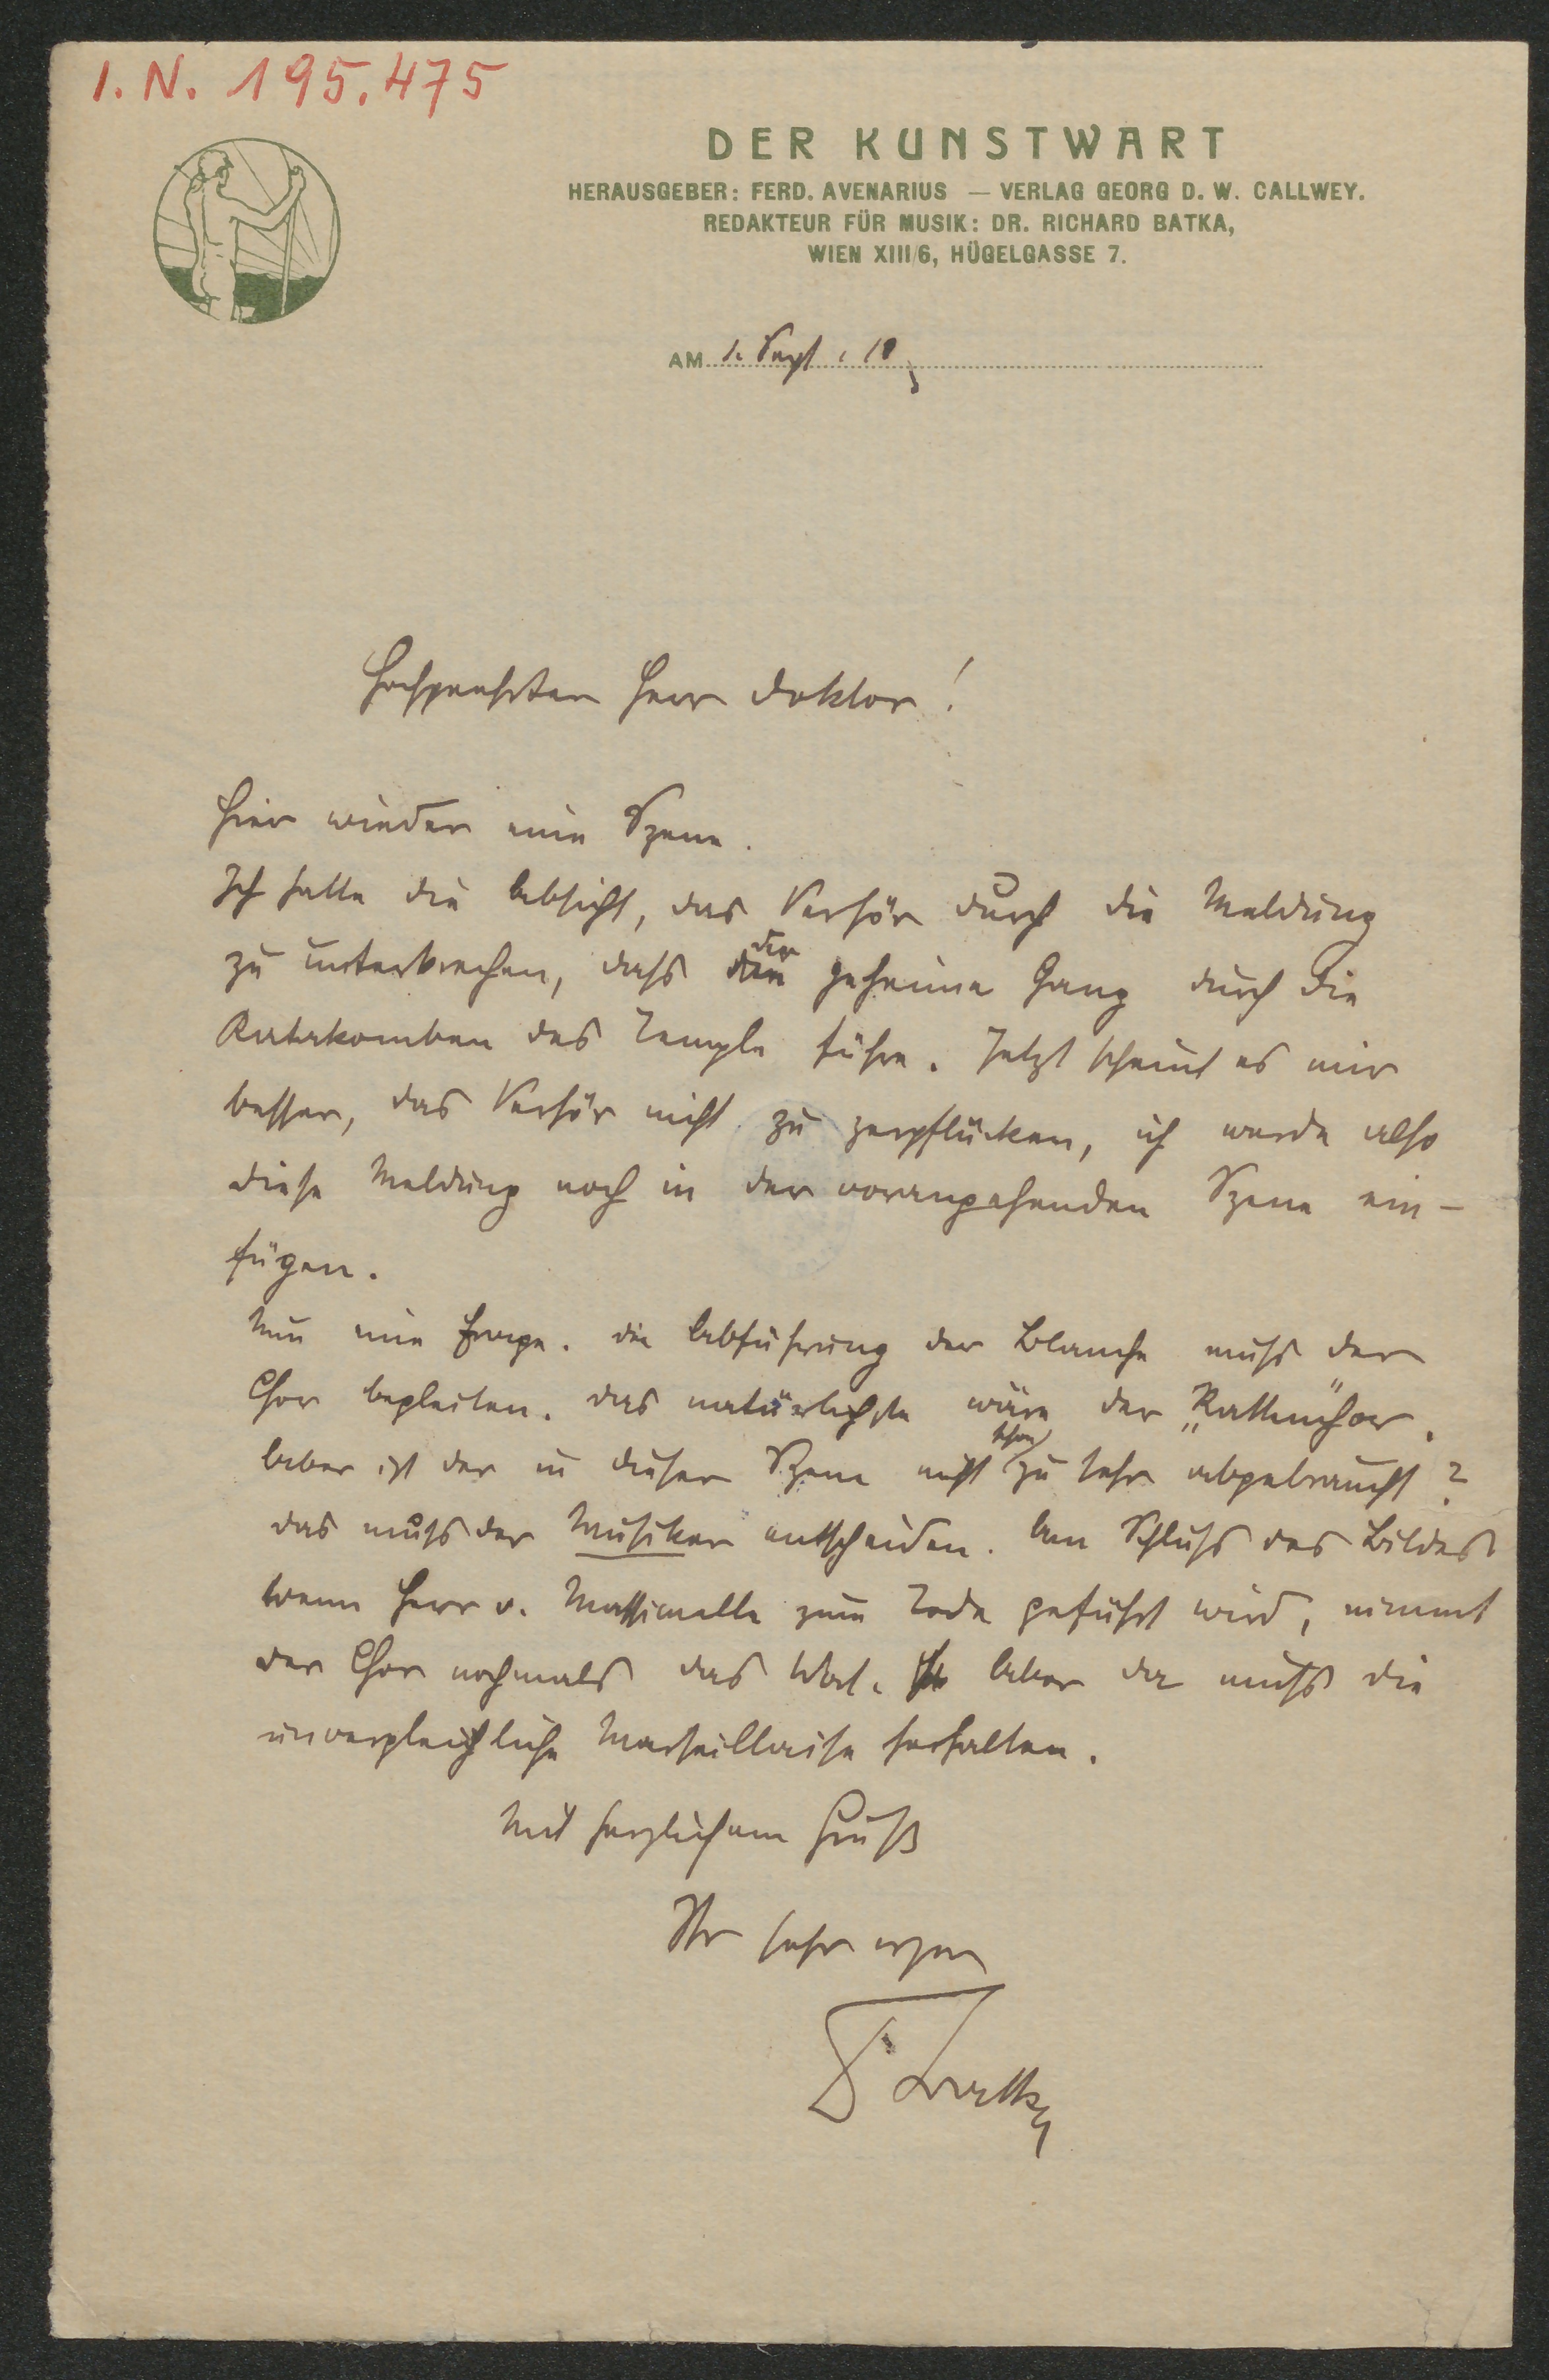 I. N. 195.475
DER KUNSTWART
HERAUSGEBER: FERD. AVENARIUS — VERLAG GEORG D. W. CALLWEY.
REDAKTEUR FÜR MUSIK: DR. RICHARD BATKA,
WIEN XIII/6, HÜGELGASSE 7.
AM 1. Sept. 10
Hochgeehrter Herr Doktor!
Hier wieder eine Szene.
Ich hatte die Absicht, das Verhör durch die Meldung
zu unterbrechen, dass der geheime Gang durch die
Katakomben des Temple führe. Jetzt scheint es mir
besser, das Verhör nicht zu zerpflücken, ich werde also
diese Meldung noch in der vorangehenden Szene ein-
fügen.
Nun eine Frage. Die Abführung der Blanche muss der
Chor begleiten. Das natürlichste wäre der
Aber ist der in dieser Szene nicht schon zu sehr abgebraucht?
Das muss der Musiker entscheiden. Am Schluss des Bildes
wenn Herr v. zum Tode geführt wird, nimmt
der Chor nochmals das Wort. Aber da muss die
unvergleichliche Marseillaise herhalten.
Mit herzlichem Gruß
Ihr sehr ergen
Dr Batka